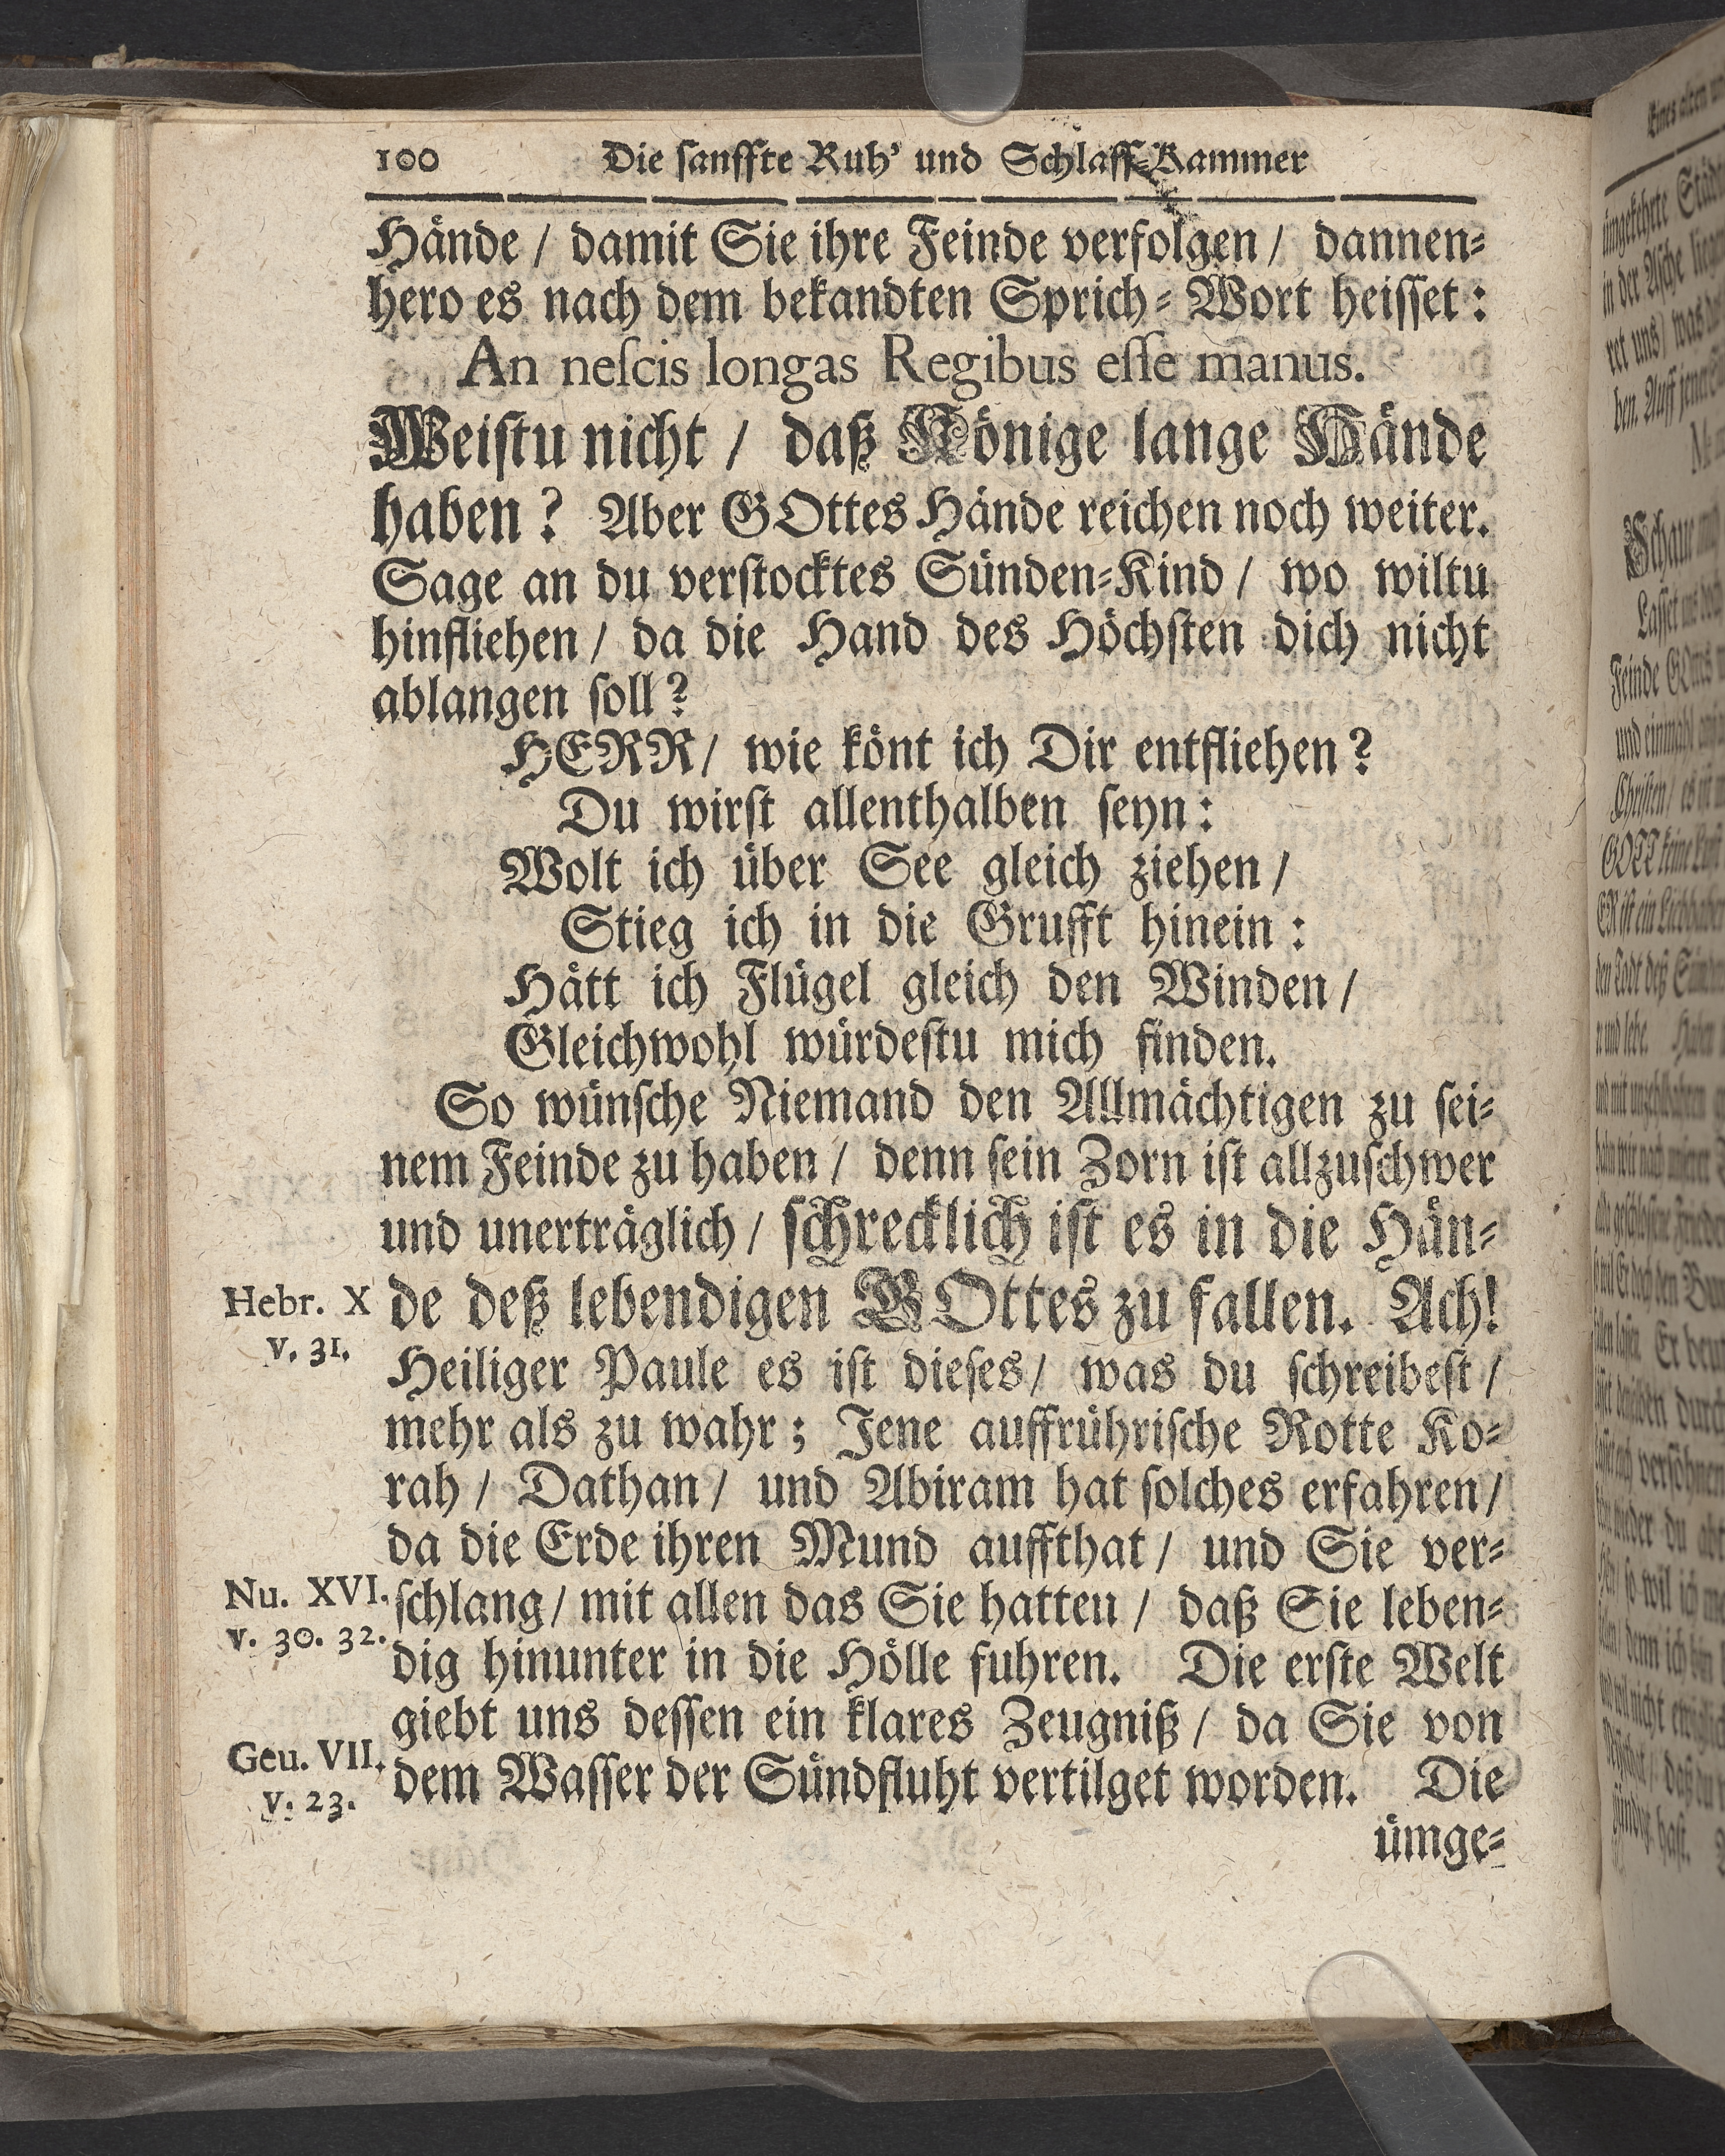 100 Die sanffte Ruh' und Schlaff-Kammer
Hände / damit Sie ihre Feinde verfolgen / dannen-
hero es nach dem bekandten Sprich-Wort heisset:
An nescis longas Regibus esse manus.
Weistu nicht / daß Könige lange Hände
haben? Aber GOttes Hände reichen noch weiter.
Sage an du verstocktes Sünden-Kind / wo wiltu
hinfliehen / da die Hand des Höchsten dich nicht
ablangen soll?
HERR / wie könt ich Dir entfliehen?
Du wirst allenthalben seyn:
Wolt ich über See gleich ziehen /
Stieg ich in die Grufft hinein:
Hätt ich Flügel gleich den Winden /
Gleichwohl würdestu mich finden.
So wünsche Niemand den Allmächtigen zu sei-
nem Feinde zu haben / denn sein Zorn ist allzuschwer
und unerträglich / schrecklich ist es in die Hän-
Hebr. X
v. 31.
de deß lebendigen GOttes zu fallen. Ach!
Heiliger Paule es ist dieses / was du schreibest /
mehr als zu wahr; Jene auffrührische Rotte Ko-
rah / Dathan / und Abiram hat solches erfahren /
da die Erde ihren Mund auffthat / und Sie ver-
Nu. XVI.
v. 30. 32.
schlang / mit allen das Sie hatteu / daß Sie leben-
dig hinunter in die Hölle fuhren. Die erste Welt
giebt uns dessen ein klares Zeugniß / da Sie von
Geu. VII.
v. 23.
dem Wasser der Sündfluht vertilget worden. Die
ümge-